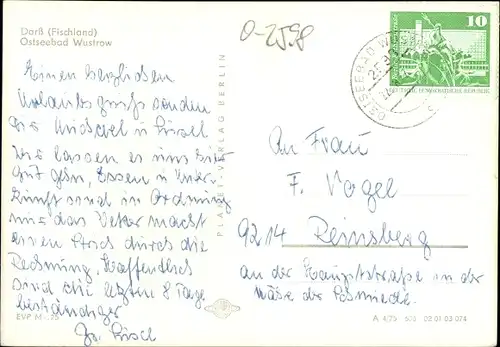 Dorß (Fischland)
Ostseebad Wustrow
0-2598
10
DEUTSCHE DEMOKRATISCHE REPUBLIK
OSTSEEBAD W
Einen herzlichen
Urlaubsgruß senden
Die lassen es uns hier
gut gehn, Essen u. Unter-
kunft sind in Ordnung
nur das Wetter macht
einen Strich durch die
Rechnung, hoffentlich
sind die letzten 8 Tage
beständiger
PLANET-VERLAG BERLIN
An Frau
F. Vogel
9214 Reinsberg
an der Hauptstraße in der
Nähe der Schmiede.
EVP M -,25
A 4/75 503 02 01 03 074